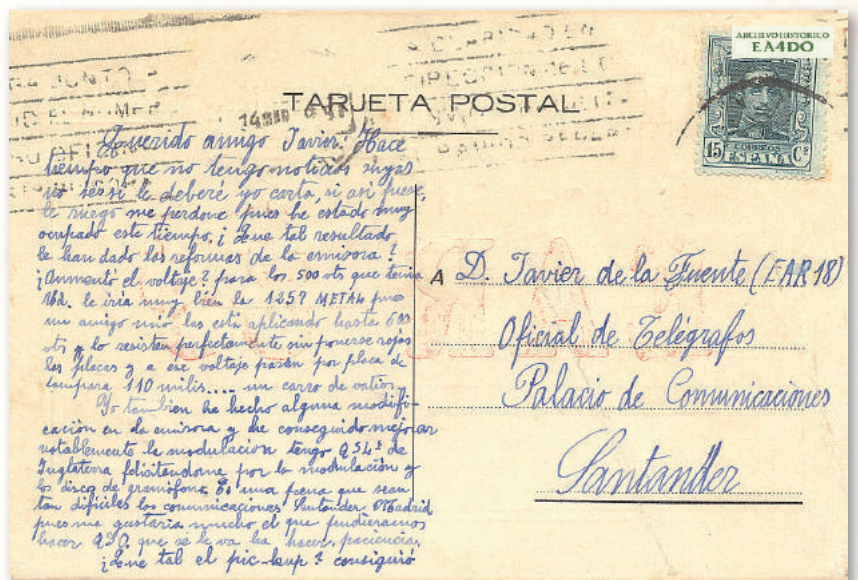 ARCHIVO HISTORICO
EA4DO
TARJETA POSTAL
15 CORREOS ESPAÑA Cs
Querido amigo Javier: Hace
tiempo que no tengo noticias suyas
no sé si le deberé yo carta, si asi fuese,
le ruego me perdone pues he estado muy
ocupado este tiempo. ¿Que tal resultado
le han dado las reformas de la emisora?
¿Aumentó el voltaje? para los 500 vts que tenia
Vd. le iria muy bien la 1257 METAL pues
un amigo mio las está aplicando hasta 600
vts y lo resisten perfectamente sin ponerse rojas
las placas y a ese voltaje pasan por placa de
lampara 110 milis.... un carro de vatios.
Yo tambien he hecho alguna modifi-
cación en la emisora y he conseguido mejorar
notablemente la modulacion tengo QSLs de
Inglaterra felicitandome por la modulación y
los discos de gramófono. Es una pena que sean
tan dificiles las comunicaciones Santander Madrid
pues me gustaria mucho el que pudieramos
hacer QSO. que se le va ha hacer, paciencia.
¿Que tal el pic-kup? consiguió
A D. Javier de la Fuente (EAR 18)
Oficial de Telégrafos
Palacio de Comunicaciones
Santander